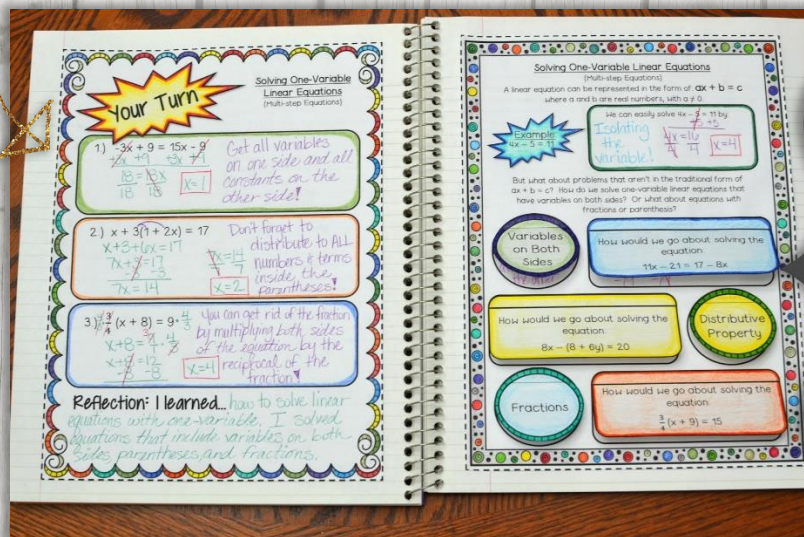 Your Turn
Solving One-Variable
Linear Equations
(Multi-step Equations)
1) -3x + 9 = 15x - 9
+3x +9 +3x +9
18 = 18x
18 18
x=1
Get all variables
on one side and all
constants on the
other side!
2) x + 3(1 + 2x) = 17
x+3+6x=17
7x+3=17
-3
7x=14
7x=14
7 7
x=2
Don't forget to
distribute to ALL
numbers & terms
inside the
parentheses!
3) 4/3 · 3/4 (x + 8) = 9 · 4/3
x+8=
x+8=12
-8 -8
x=4
You can get rid of the fraction
by multiplying both sides
of the equation by the
reciprocal of the
fraction!
Reflection: I learned... how to solve linear
equations with one-variable. I solved
equations that include variables on both
sides, parentheses, and fractions.
Solving One-Variable Linear Equations
(Multi-step Equations)
A linear equation can be represented in the form of ax + b = c
where a and b are real numbers, with a ≠ 0.
Example:
4x - 5 = 11
We can easily solve 4x - 5 = 11 by
+5 +5
Isolating
the
variable!
4x=16
4 4
x=4
But what about problems that aren't in the traditional form of
ax + b = c? How do we solve one-variable linear equations that
have variables on both sides? Or what about equations with
fractions or parenthesis?
Variables
on Both
Sides
How would we go about solving the
equation
11x - 21 = 17 - 8x
How would we go about solving the
equation
8x - (8 + 6y) = 20
Distributive
Property
Fractions
How would we go about solving the
equation
3/4 (x + 9) = 15